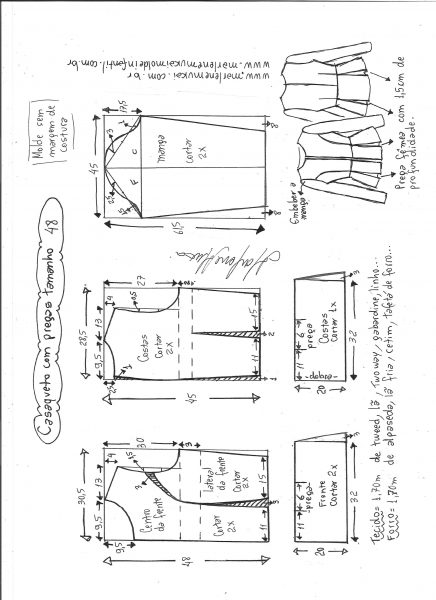 Casaqueto com pregas tamanho 48
Molde sem
margem de
costura
www.marlenemukai.com.br
www.marlenemukaimoldeinfantil.com.br
45
17,5
61,5
manga
cortar
2x
C
F
8
8
Embeber a
manga
Prega fêmea com 1,5cm de
profundidade.
28,5
9,5
13
4
27
45
Costas
Cortar
2x
15
11
2
1
prega
Costas
Cortar 1x
11
6
20
32
3
30,5
9,5
13
4
30
3
9,5
48
Centro da
frente
Cortar
2x
lateral
da frente
Cortar
2x
15
11
3
prega
Frente
Cortar 2x
11
6
20
32
3
Tecido = 1,70m de tweed, lã, two way, gabardine, linho...
Forro = 1,70m de alpaseda, lã fria, cetim, tafetá de forro...